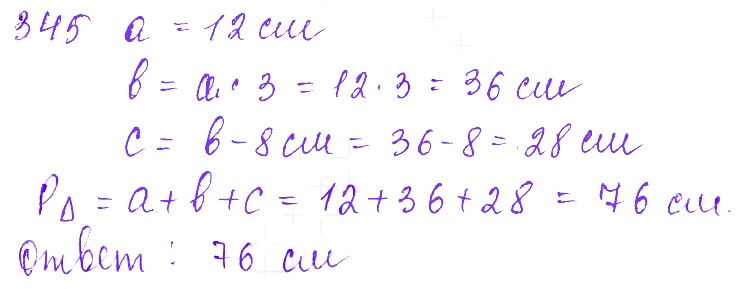 345 a = 12 см
в = a · 3 = 12 · 3 = 36 см
c = в - 8 см = 36 - 8 = 28 см
P∆ = a + в + c = 12 + 36 + 28 = 76 см.
Ответ: 76 см